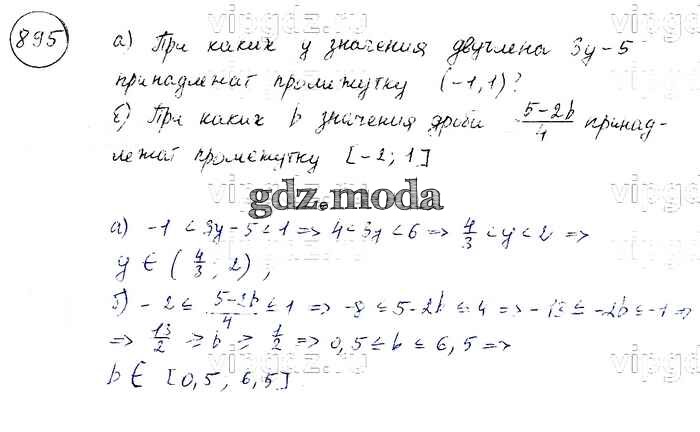 895
а) При каких y значения двучлена 3y-5
принадлежат промежутку (-1, 1)?
б) При каких b значения дроби (5-2b)/4 принад-
лежат промежутку [-2; 1]
gdz.moda
а) -1 < 3y-5 < 1 => 4 < 3y < 6 => 4/3 < y < 2 =>
y ∈ (4/3; 2),
б) -2 ≤ (5-2b)/4 ≤ 1 => -8 ≤ 5-2b ≤ 4 => -13 ≤ -2b ≤ -1 =>
=> 13/2 ≥ b ≥ 1/2 => 0,5 ≤ b ≤ 6,5 =>
b ∈ [0,5; 6,5]
vipgdz.ru